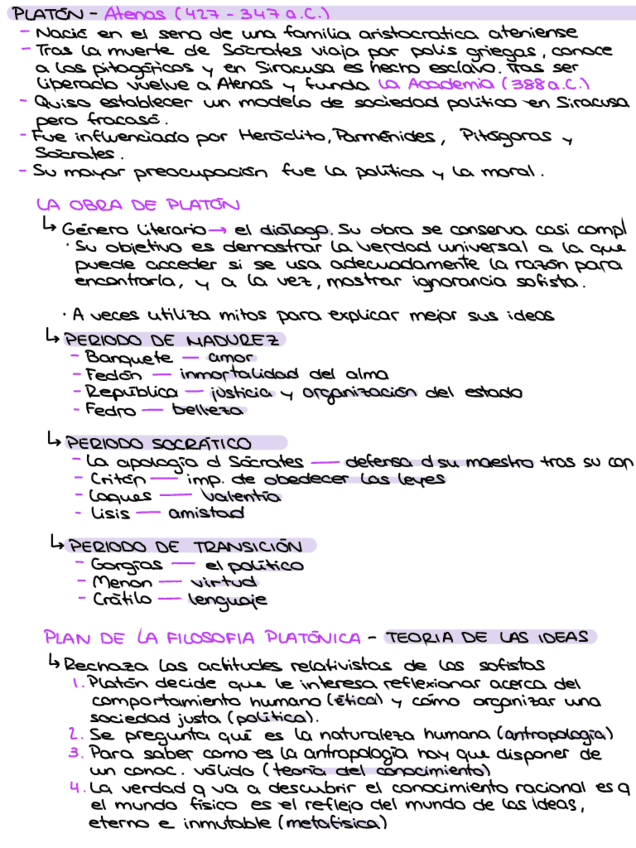 PLATÓN - Atenas (427 - 347 a.C.)
- Nació en el seno de una familia aristocratica ateniense
- Tras la muerte de Sócrates viaja por polis griegas, conoce
a los pitagóricos y en Siracusa es hecho esclavo. Tras ser
liberado vuelve a Atenas y funda la Academia (388 a.C.)
- Quiso establecer un modelo de sociedad político en Siracusa
pero fracasó.
- Fue influenciado por Heráclito, Parménides, Pitágoras y
Sócrates.
- Su mayor preocupación fue la política y la moral.
LA OBRA DE PLATÓN
↳ Género literario → el diálogo. Su obra se conserva casi compl
· Su objetivo es demostrar la verdad universal a la que
puede acceder si se usa adecuadamente la razón para
encontrarla, y a la vez, mostrar ignorancia sofista.
· A veces utiliza mitos para explicar mejor sus ideas
↳ PERIODO DE MADUREZ
- Banquete — amor
- Fedón — inmortalidad del alma
- República — justicia y organización del estado
- Fedro — belleza
↳ PERIODO SOCRÁTICO
- La apología d Sócrates — defensa d su maestro tras su con
- Critón — imp. de obedecer las leyes
- Laques — valentía
- Lisis — amistad
↳ PERIODO DE TRANSICIÓN
- Gorgias — el político
- Menon — virtud
- Crátilo — lenguaje
PLAN DE LA FILOSOFIA PLATÓNICA - TEORIA DE LAS IDEAS
↳ Rechaza las actitudes relativistas de los sofistas
1. Platón decide que le interesa reflexionar acerca del
comportamiento humano (ética) y cómo organizar una
sociedad justa (política).
2. Se pregunta qué es la naturaleza humana (antropología)
3. Para saber como es la antropología hay que disponer de
un conoc. válido (teoría del conocimiento)
4. La verdad q va a descubrir el conocimiento racional es q
el mundo físico es el reflejo del mundo de las Ideas,
eterno e inmutable (metafísica)